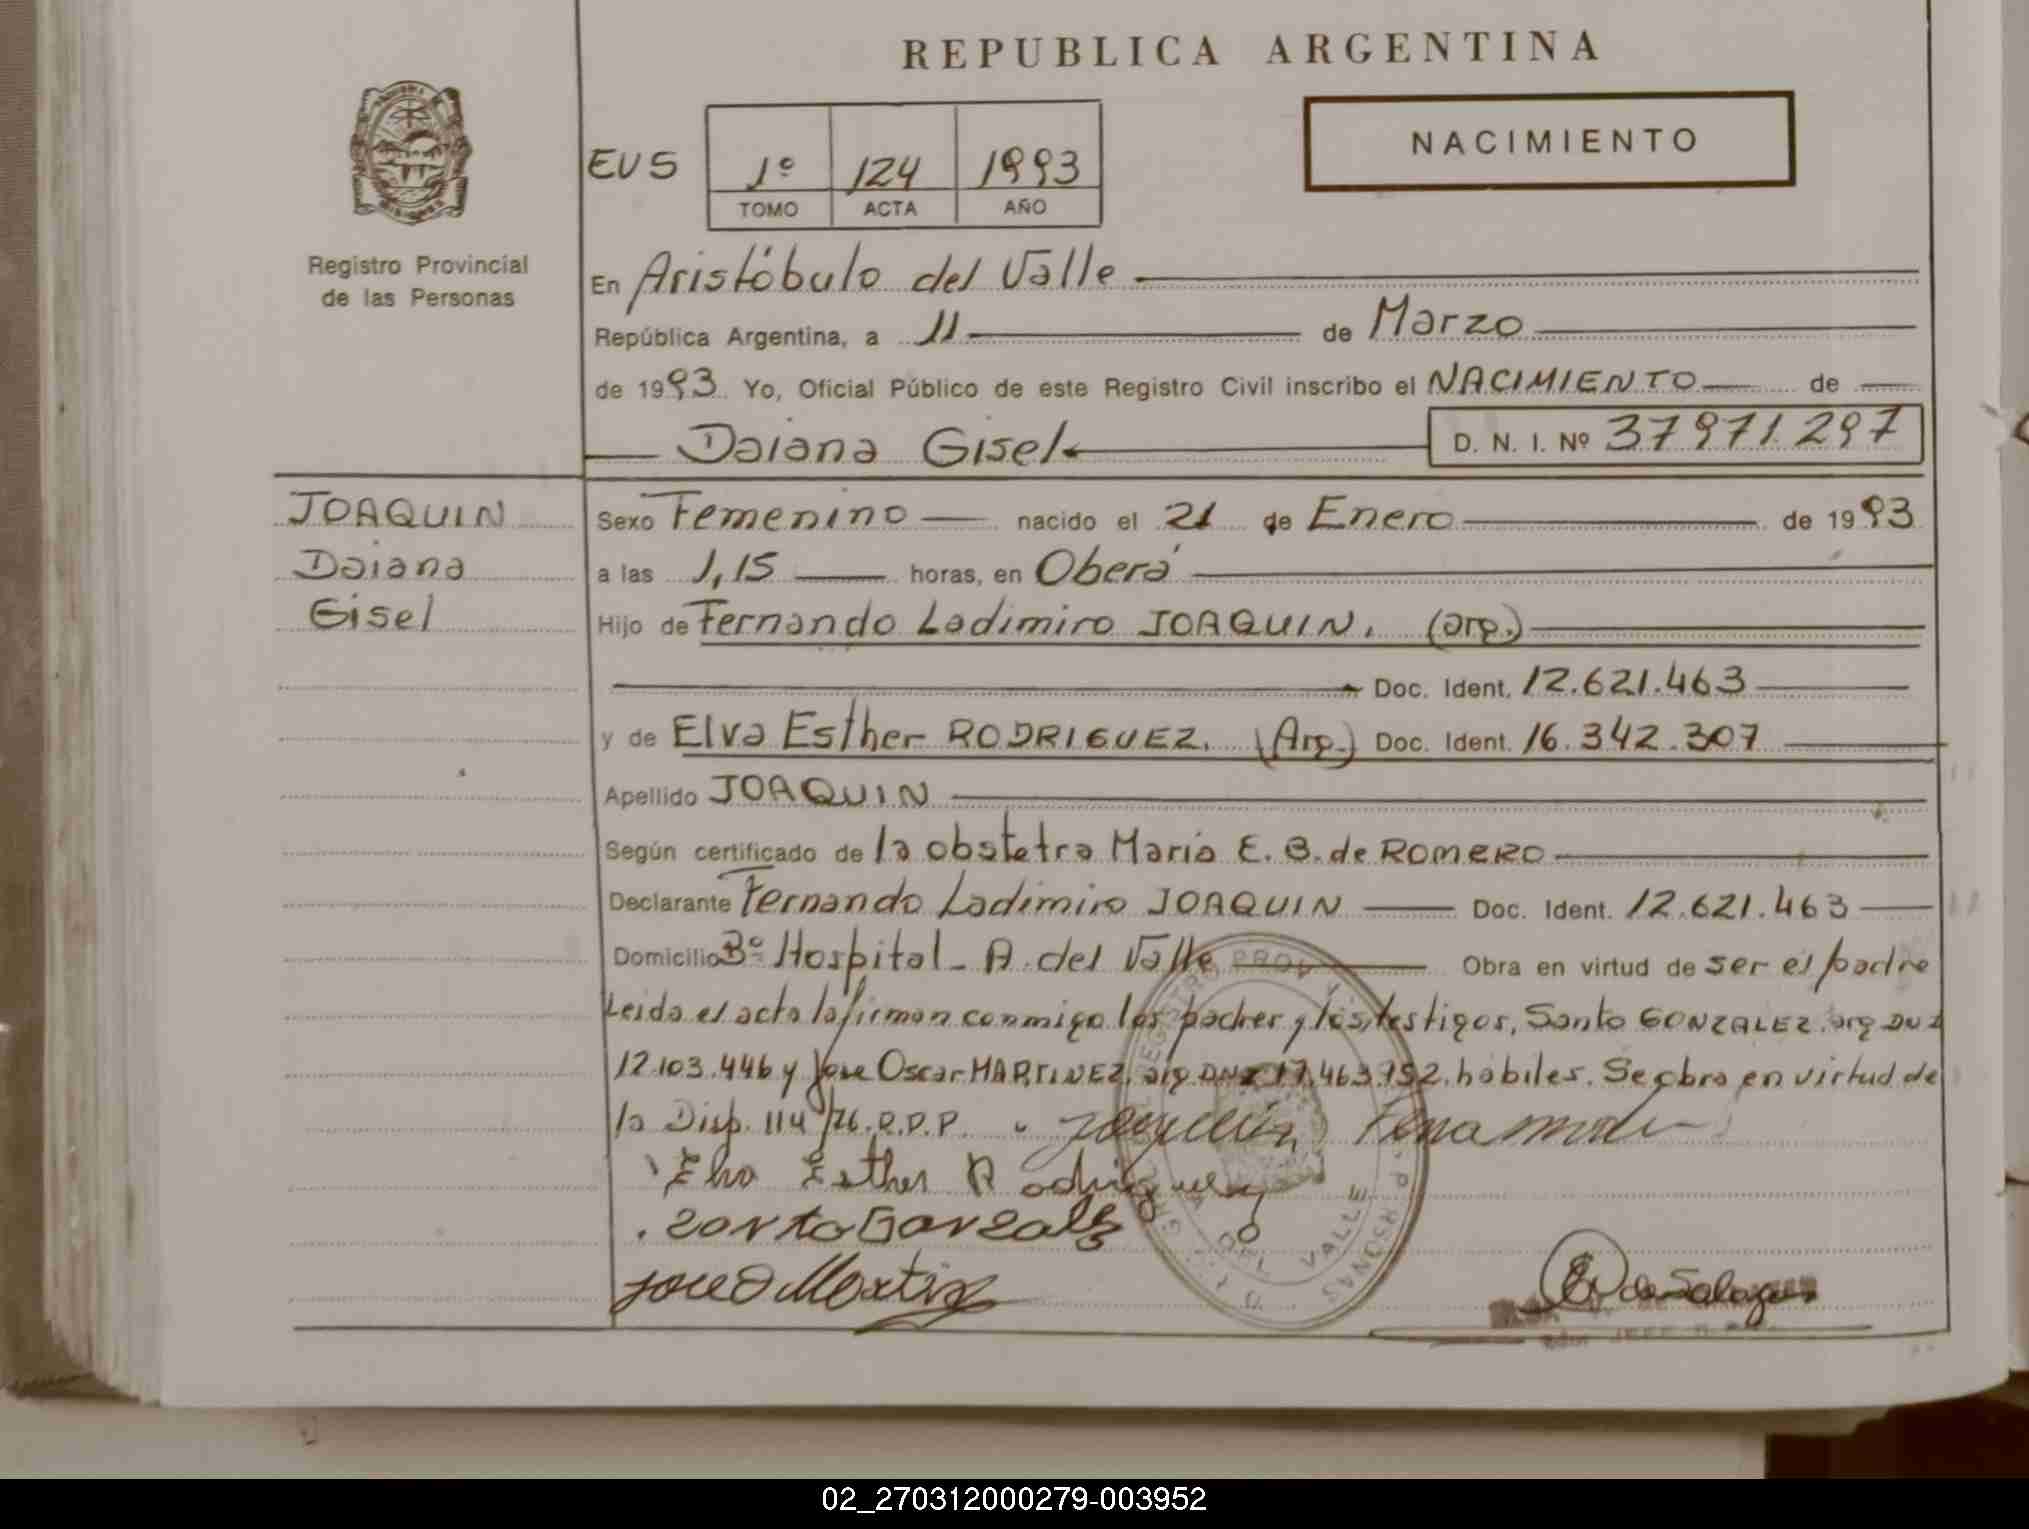 REPUBLICA ARGENTINA
NACIMIENTO
EUS 1º 124 1993
TOMO ACTA AÑO
Registro Provincial
de las Personas
En Aristóbulo del Valle
República Argentina, a 11 de Marzo
de 1993 Yo, Oficial Público de este Registro Civil inscribo el NACIMIENTO de
Daiana Gisel D. N. I. Nº 37971.297
JOAQUIN
Daiana
Gisel
Sexo Femenino nacido el 21 de Enero de 1993
a las 1,15 horas, en Oberá
Hijo de Fernando Ladimiro JOAQUIN. (arg.)
Doc. Ident. 12.621.463
y de Elva Esther RODRIGUEZ. (Arg.) Doc. Ident. 16.342.307
Apellido JOAQUIN
Según certificado de la obstetra Maria E. B. de ROMERO
Declarante Fernando Ladimiro JOAQUIN Doc. Ident. 12.621.463
Domicilio Bº Hospital - A. del Valle Obra en virtud de ser el padre
Leida el acta la firman conmigo los padres y los testigos, Santo GONZALEZ. arg DNI
12.103.446 y Jose Oscar MARTINEZ. arg DNI 17.463.152. habiles. Se obra en virtud de
la Disp. 114/76.R.P.P. Joaquin
Elva Esther Rodriguez
Santo Gonzalez
Jose O Martinez
DEL VALLE
02_270312000279-003952